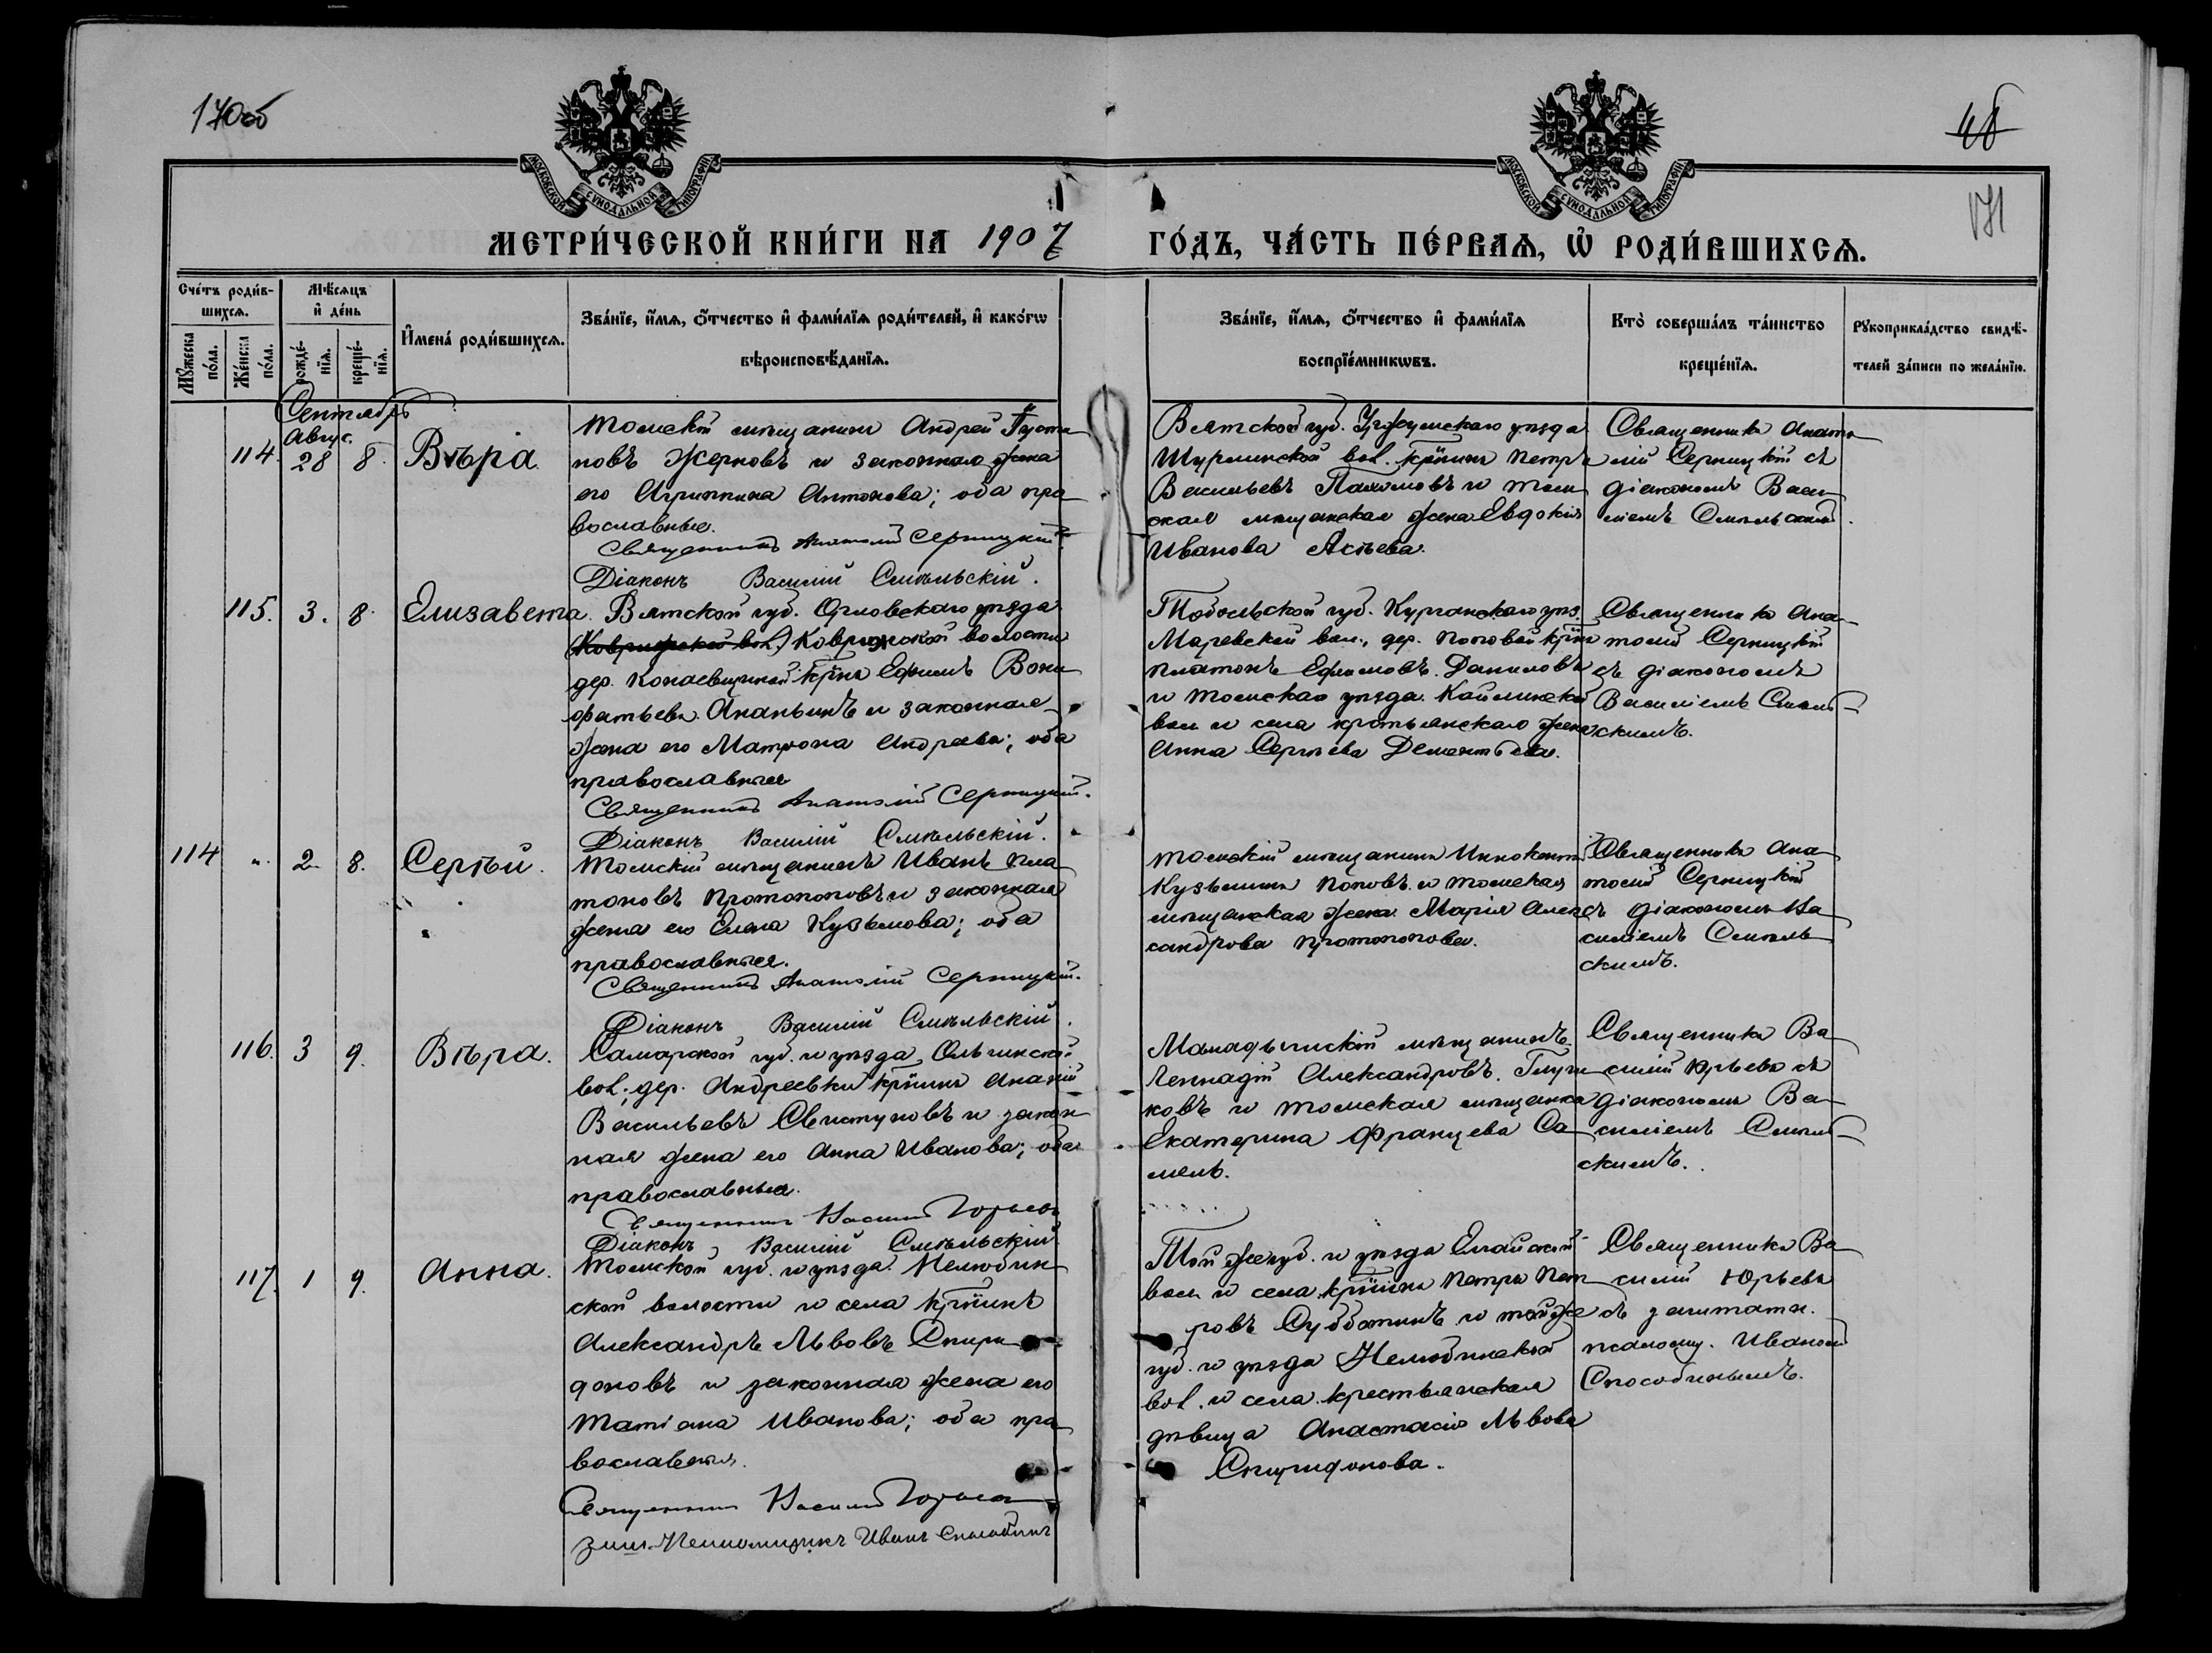 170об
48
171
МОСКОВСКОЙ СѴНОДАЛЬНОЙ ТИПОГРАФІИ
МОСКОВСКОЙ СѴНОДАЛЬНОЙ ТИПОГРАФІИ
МЕТРИ́ЧЕСКОЙ КНИ́ГИ НА 1907 ГО́ДЪ, ЧА́СТЬ ПЕ́РВАѦ, Ѡ҆ РОДИ́ВШИХСѦ.
Сче́тъ роди́в-
шихсѧ.
Мꙋ́жеска
по́ла.
Же́нска
по́ла.
Мѣ́сѧцъ
и҆ де́нь
рожде́-
нїѧ.
креще́-
нїѧ.
И҆мена̀ роди́вшихсѧ.
Зва́нїе, и҆́мѧ, ѻ҆́тчество и҆ фами́лїѧ роди́телей, и҆ како́гѡ
вѣроисповѣ́данїѧ.
Зва́нїе, и҆́мѧ, ѻ҆́тчество и҆ фами́лїѧ
воспрїе́мникѡвъ.
Кто̀ соверша́лъ та́инство
креще́нїѧ.
Рꙋкоприкла́дство свидѣ́-
телей за́писи по жела́нїю.
Сентябрь
Авгус.
114. 28 8. Вѣра.
Томскій мѣщанинъ Андрей
новъ Жерновъ и законная жена
его Агриппина Антонова; оба пра
вославные.
Священникъ Анатолій Серницкій.
Діаконъ Василій Смѣльскій.
Вятской губ. Уржумскаго уѣзда
Шурминской вол. кр҃нинъ Петръ
Васильевъ Пахомовъ и том
ская мѣщанская жена Евдокія
Иванова Асѣева.
Священникъ Анато
лій Серницкій съ
діакономъ Васи
ліемъ Смѣльскимъ.
115. 3. 8. Елизавета.
Вятской губ. Орловскаго уѣзда
Ковр волости
дер. кр҃нъ Ефимъ Вони
фатьевъ Ананьинъ и законная
жена его Матрона Андреева; оба
православныя
Священникъ Анатолій Серницкій.
Діаконъ Василій Смѣльскій.
Тобольской губ. Курганскаго уѣз.
Маревской вол., дер. Поповой кр҃нъ
Платонъ Ефимовъ Даниловъ
и Томскаго уѣзда
вол и села жена
Анна Сергѣева Дементьева.
Священникъ Ана
толій Серницкій
съ діакономъ
Василіемъ Смѣль
скимъ.
114 „. 2. 8. Сергѣй.
Томскій мѣщанинъ Иванъ Пла
тоновъ Протопоповъ и законная
жена его Елена Кузьмова; оба
православныя.
Священникъ Анатолій Серницкій.
Діаконъ Василій Смѣльскій.
Томскій мѣщанинъ Иннокентій
Кузьминъ Поповъ и томская
мѣщанская жена Марія Алек
сандрова Протопопова.
Священникъ Ана
толій Серницкій
съ діакономъ Ва
силіемъ Смѣль
скимъ.
116. 3 9. Вѣра.
Самарской губ. и уѣзда, Ольгинской
вол. дер. Андреевки кр҃нинъ Ананій
Васильевъ Свистуновъ и закон
ная жена его Анна Иванова; оба
православныя.
Священникъ Василій Юрьевъ
Діаконъ, Василій Смѣльскій
Мамадышскій мѣщанинъ
Геннадій Александровъ
ковъ и томская мѣщанка
Екатерина Францева Са
мель.
Священникъ Ва
силій Юрьевъ съ
діакономъ Ва
силіемъ Смѣль
скимъ.
117. 1 9. Анна.
Томской губ. и уѣзда Нелюбин
ской волости и села кр҃нинъ
Александръ Львовъ Спири
доновъ и законная жена его
Татіана Иванова; оба пра
вославныя.
Священникъ Василій Юрьевъ
зашт. Псаломщикъ Иванъ Способинъ
Той же губ. и уѣзда Елгайской
вол. и села кр҃нинъ Петръ Пет
ровъ Субботинъ и той же
губ. и уѣзда Нелюбинской
вол. и села крестьянская
дѣвица Анастасія Львова
Спиридонова.
Священникъ Ва
силій Юрьевъ
съ заштатн.
псаломщ. Иваномъ
Способинымъ.